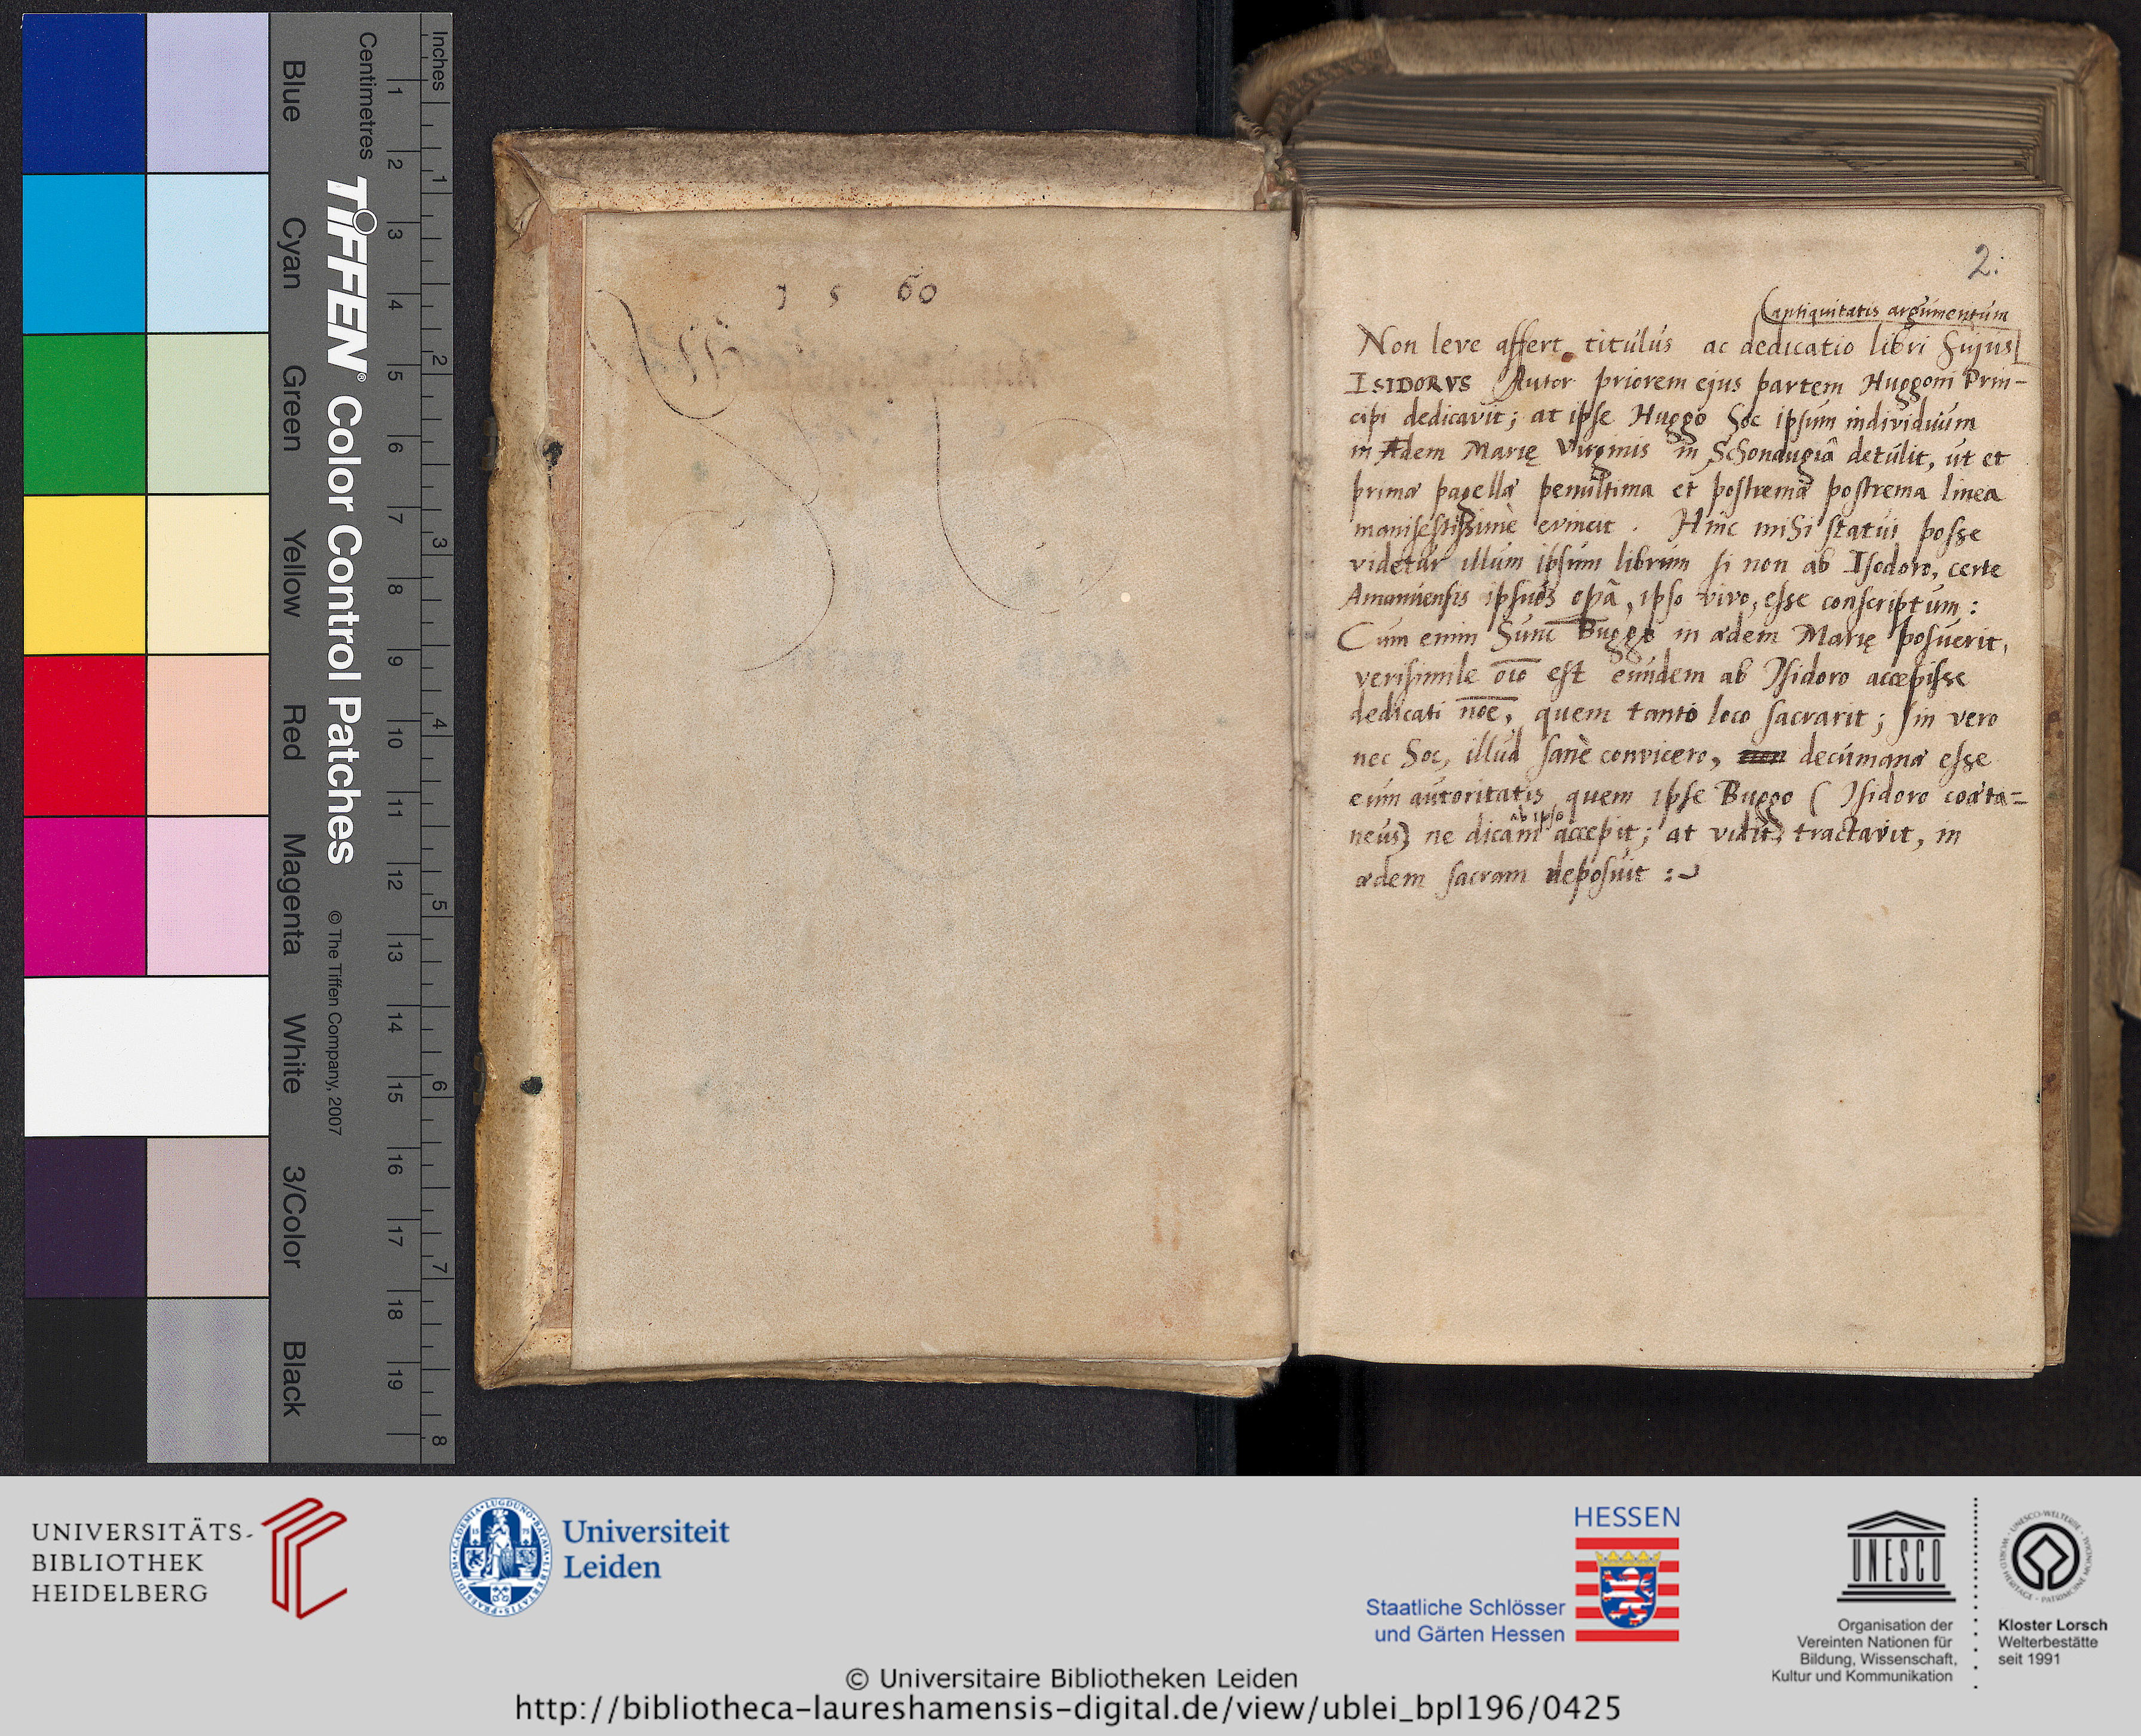 Blue
Cyan
Green
Yellow
Red
Magenta
White
3/Color
Black
TIFFEN® Color Control Patches © The Tiffen Company, 2007
Centimetres
1 2 3 4 5 6 7 8 9 10 11 12 13 14 15 16 17 18 19
Inches
1 2 3 4 5 6 7 8
1 5 60
2.
antiquitatis argumentum
Non leve affert titulus ac dedicatio libri hujus
ISIDORVS Autor priorem ejus partem Huggoni Prin-
cipi dedicavit; at ipse Huggo hoc ipsum individuum
in Ædem Marię Virginis in Schonaugiâ detulit, ut et
primæ pagellæ penultima et postremæ postrema linea
manifestissimè evincit. Hinc mihi statui posse
videtur illum ipsum librum si non ab Isodoro, certe
Amanuensis ipsius opā, ipso vivo, esse conscriptum:
Cum enim hunc Buggo in ædem Marię posuerit,
verisimile oīo est eundem ab Isidoro accepisse
dedicati nōe, quem tanto loco sacrarit; sin vero
nec hoc, illud sanè convicero, decumanæ esse
eum autoritatis, quem ipse Buggo (Isidoro coæta=
neus) ne dicam ab ipso accepit; at vidit, tractavit, in
ædem sacram deposuit :
UNIVERSITÄTS-
BIBLIOTHEK
HEIDELBERG
Universiteit
Leiden
HESSEN
Staatliche Schlösser
und Gärten Hessen
UNESCO
Organisation der
Vereinten Nationen für
Bildung, Wissenschaft,
Kultur und Kommunikation
Kloster Lorsch
Welterbestätte
seit 1991
© Universitaire Bibliotheken Leiden
http://bibliotheca-laureshamensis-digital.de/view/ublei_bpl196/0425